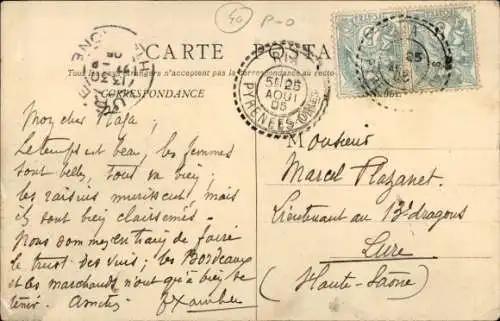 40 P-O
CARTE POSTA
Tous les pays étrangers n'acceptent pas la correspondance au recto
CORRESPONDANCE
RIA
25
AOUT
05
PYRENEES-ORIENTALES
Mon cher Naja;
Le temps est beau, les femmes
sont belles, tous va bien;
les raisins murissent, mais
ils sont bien clairsemés.
Nous sommes en train de faire
le trust des vins; les Bordeaux
et les marchands n'ont qu'à bien se
tenir. Amitiés
Monsieur
Marcel Plazanet.
Lieutenant au 13e dragons
Lure
(Haute-Saône)